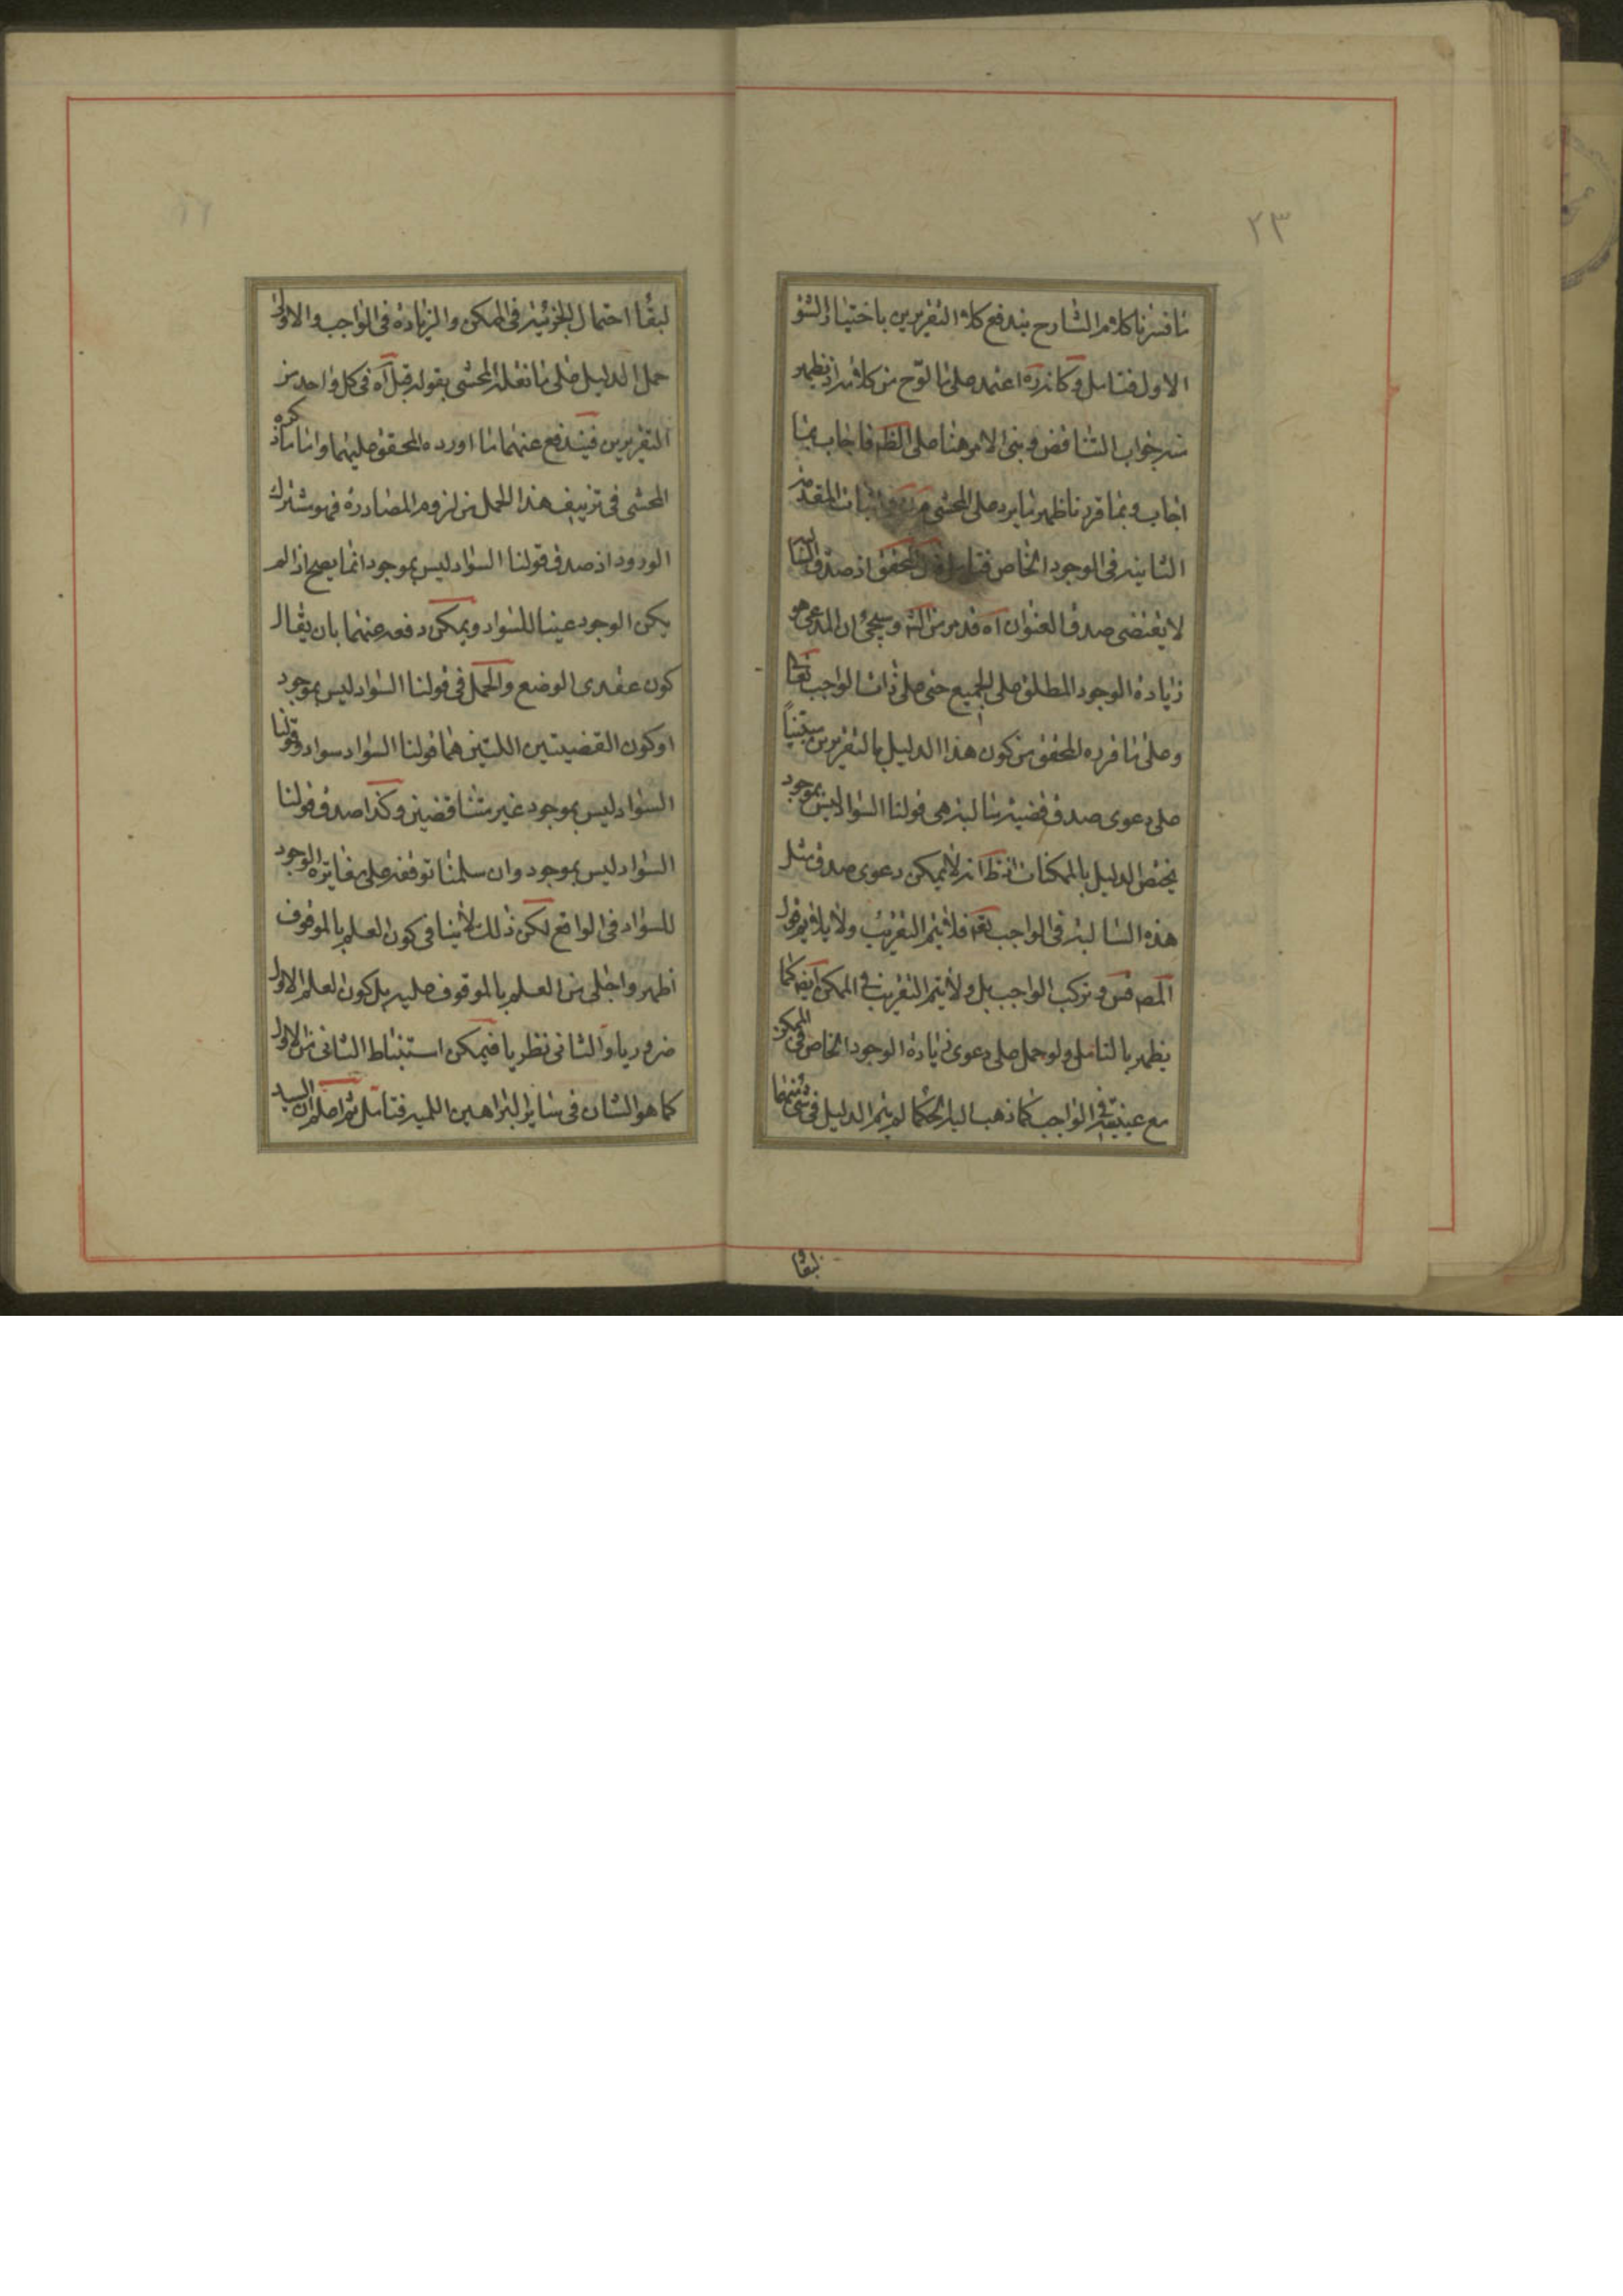 ٢٣
ما فسرنا كلام الشارح يندفع كلا التقريرين باختيار الشق
الاول فتامل وكانه ره اعتمد على ما لوح من كلامه اذ يظهر
منه جواب التناقض وبنى الامر هنا على الظ فاجاب بما
اجاب وبما قررنا ظهر ما يرد على المحشى اثبات المقدمة
الثانية فى الوجود الخاص فتامل المحقق اذ صدق السا
لا يقتضى صدق العنوان آه قد مر من الش وسيجئ ان المدعى هو
زيادة الوجود المطلق على الجميع حتى على ذات الواجب تعا
وعلى ما قرره المحقق من كون هذا الدليل بالتقريرين مبتنياً
على دعوى صدق قضية سالبة هى قولنا السواد ليس بموجود
يختص الدليل بالممكنات اذ ظ انه لا يمكن دعوى صدق مثل
هذه السالبة فى الواجب تعه فلا يتم التقريب ولا يلايم قول
المص وتركب الواجب بل ولا يتم التقريب فى الممكن ايضا كما
يظهر بالتامل ولو حمل على دعوى زيادة الوجود الخاص فى الممكن
مع عينيته فى الواجب كما ذهب اليه الحكما لم يتم الدليل فى شئ منهما
لبقا
لبقا احتمال الجزئية فى الممكن والزيادة فى الواجب والاولى
حمل الدليل على ما نقله المحشى بقوله قيل آه فى كل واحد من
التقريرين فيندفع عنهما ما اورده المحقق عليهما واما ما ذكره
المحشى فى تزييف هذا الحمل من لزوم المصادرة فهو مشترك
الورود اذ صدق قولنا السواد ليس بموجود انما يصح اذا لم
يكن الوجود عينا للسواد ويمكن دفعه عنهما بان يقال
كون عقدى الوضع والحمل فى قولنا السواد ليس بموجود
او كون القضيتين اللتين هما قولنا السواد سواد وقولنا
السواد ليس بموجود غير متناقضين وكذا صدق قولنا
السواد ليس بموجود وان سلمنا توقفه على مغايرة الوجود
للسواد فى الواقع لكن ذلك لا ينافى كون العلم بالموقوف
اظهر واجلى من العلم بالموقوف عليه بل كون العلم الاول
ضروريا والثانى نظريا فيمكن استنباط الثانى من الاول
كما هو الشان فى ساير البراهين اللميه فتامل ثم اعلم ان السيد